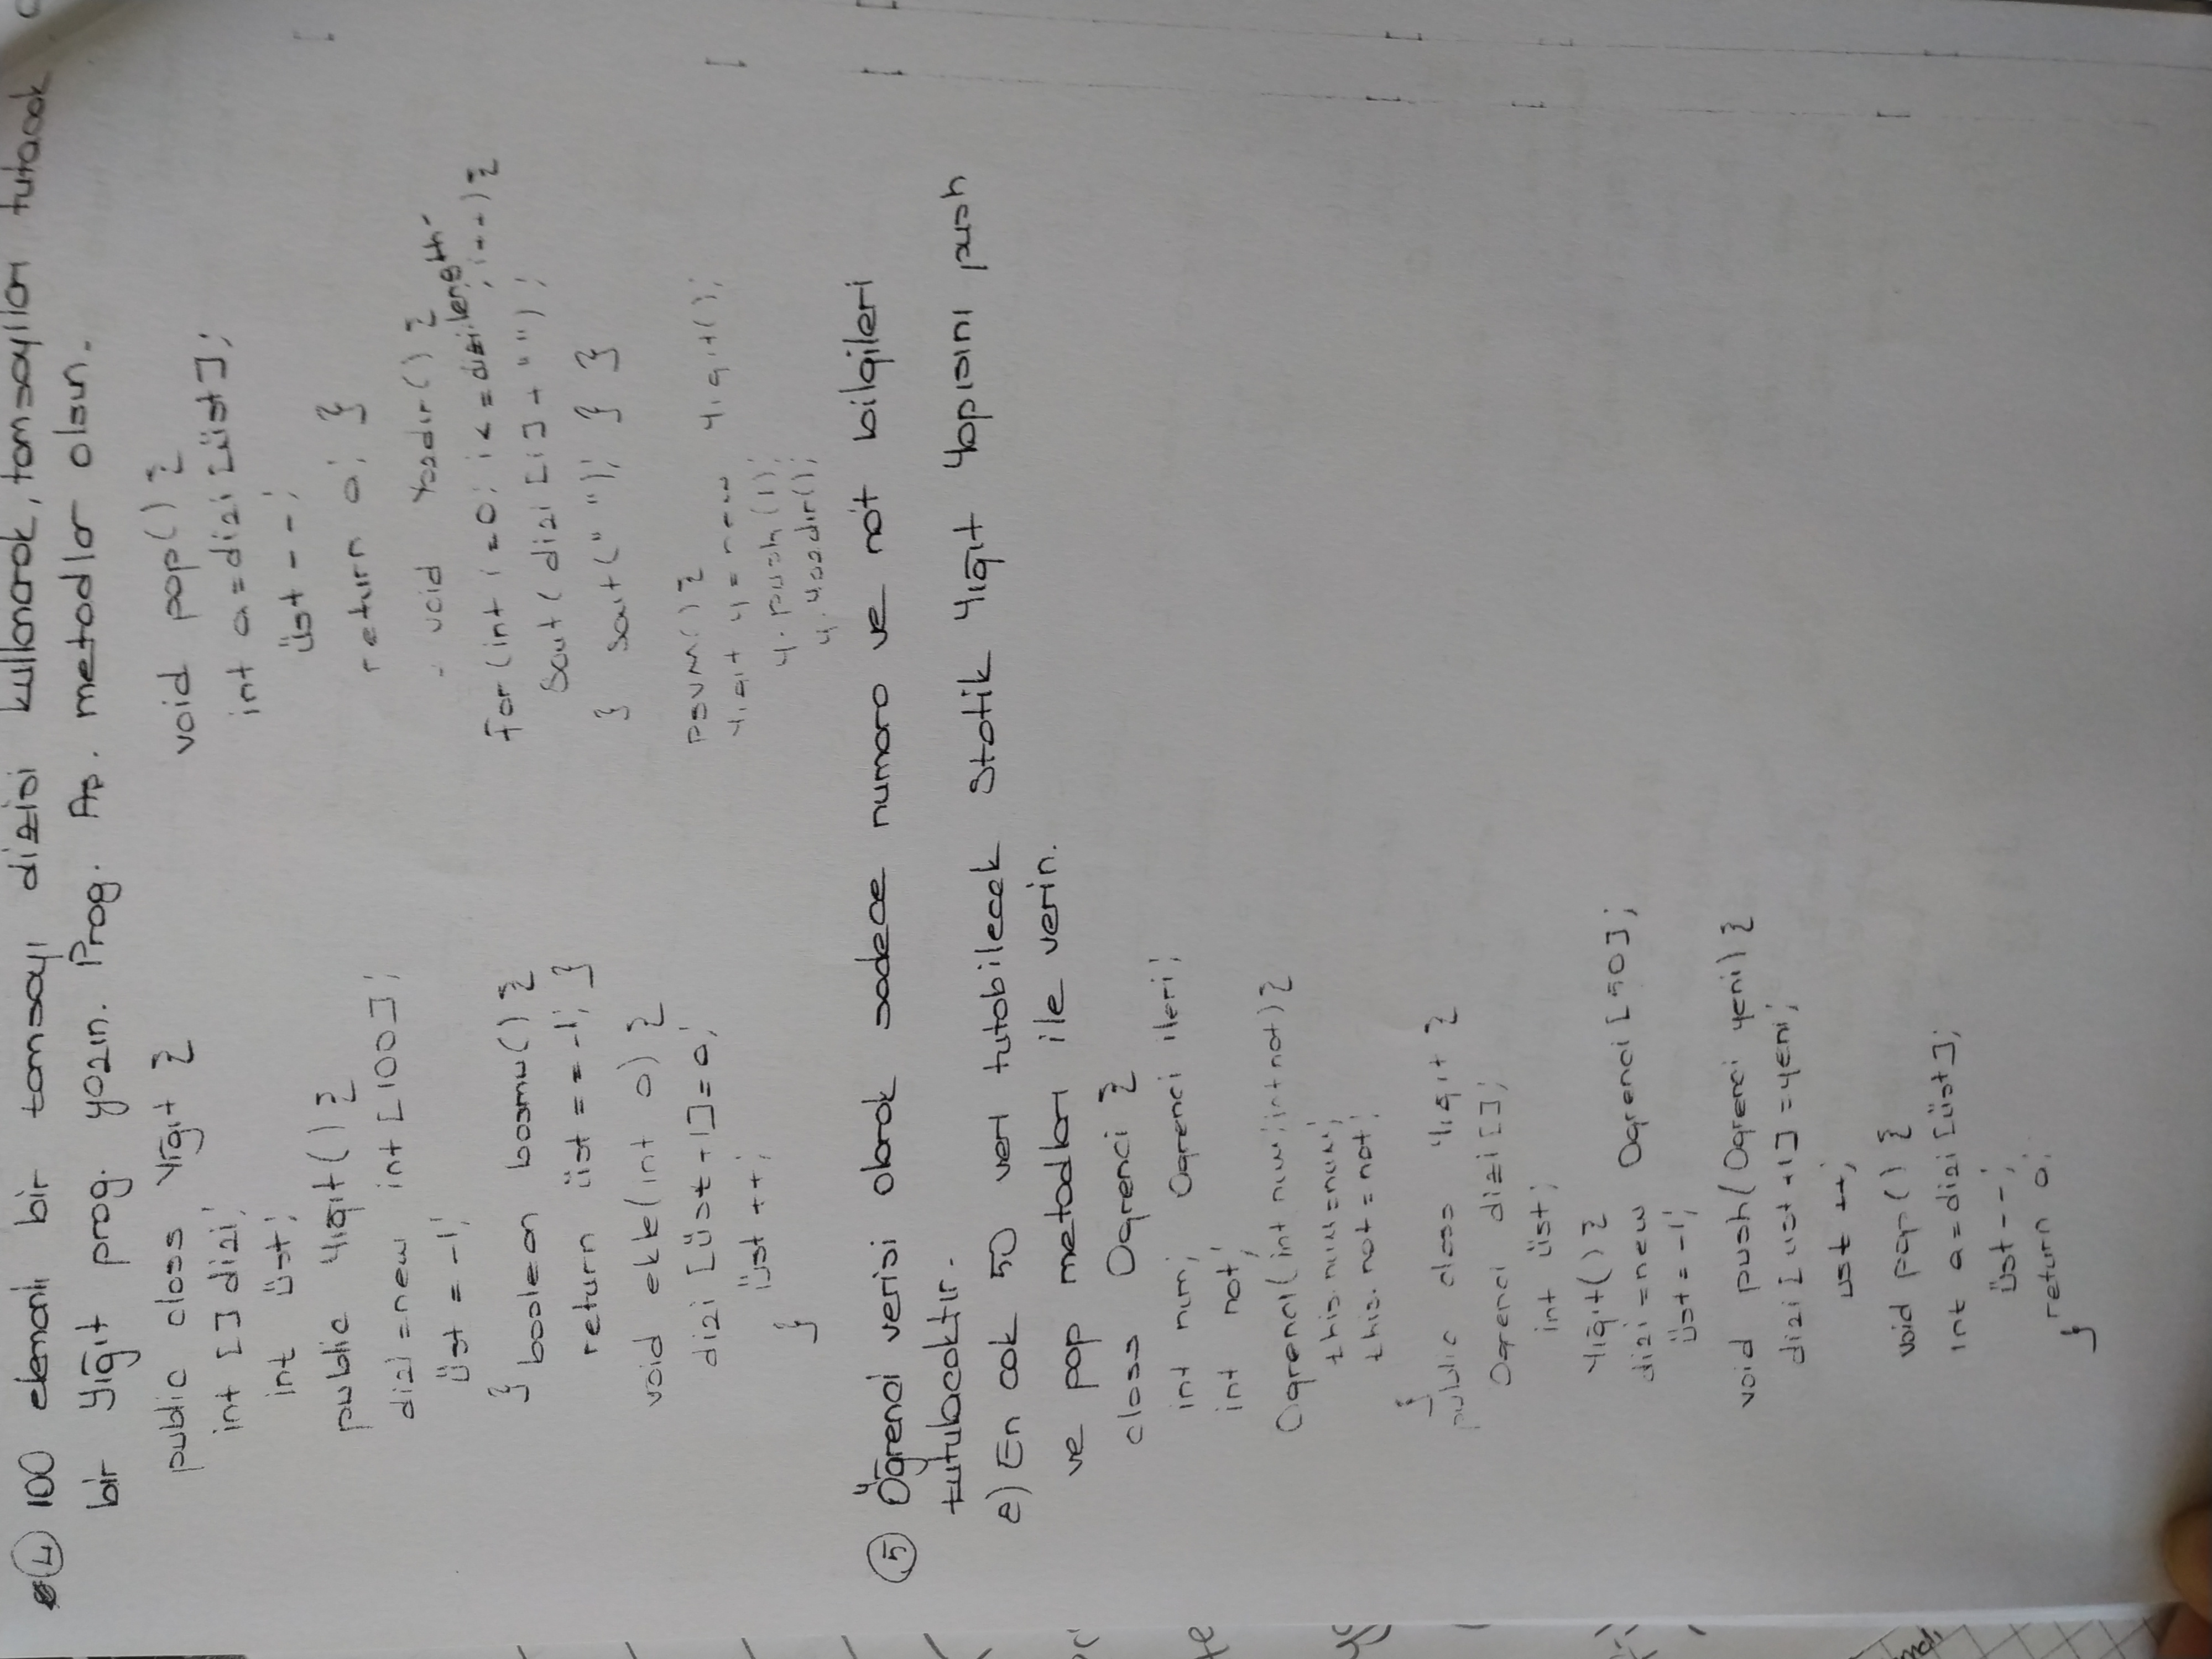 ④ 100 elemanlı bir tamsayı dizisi kullanarak, tamsayıları tutacak
bir yığıt prog. yazın. Prog. Aş. metodlar olsun.
public class Yığıt {
int [] dizi;
int üst;
public Yığıt() {
dizi = new int [100];
üst = -1;
} boolean bosmu() {
return üst == -1; }
void ekle(int a) {
dizi [üst+1] = a;
üst++;
}
void pop() {
int a = dizi [üst];
üst--;
return a; }
void Yazdır() {
for(int i=0; i<=dizi.length; i++) {
Sout( dizi [i] + " ");
} Sout(" "); } }
psvm() {
Yıgıt y = new Yıgıt();
y.push(1);
y.yazdır();
⑤ Öğrenci verisi olarak sadece numara ve not bilgileri
tutulacaktır.
e) En çok 50 veri tutabilecek Statik Yığıt Yapısını push
ve pop metodları ile verin.
class Ogrenci {
int num; Ogrenci ileri;
int not;
Ogrenci(int num; int not) {
this.num = num;
this.not = not;
}
public class Yığıt {
Ogrenci dizi [];
int üst;
Yığıt() {
dizi = new Ogrenci [50];
üst = -1;
void push(Ogrenci yeni) {
dizi [üst+1] = yeni;
üst++;
void pop() {
int a = dizi [üst];
üst--;
return a;
}